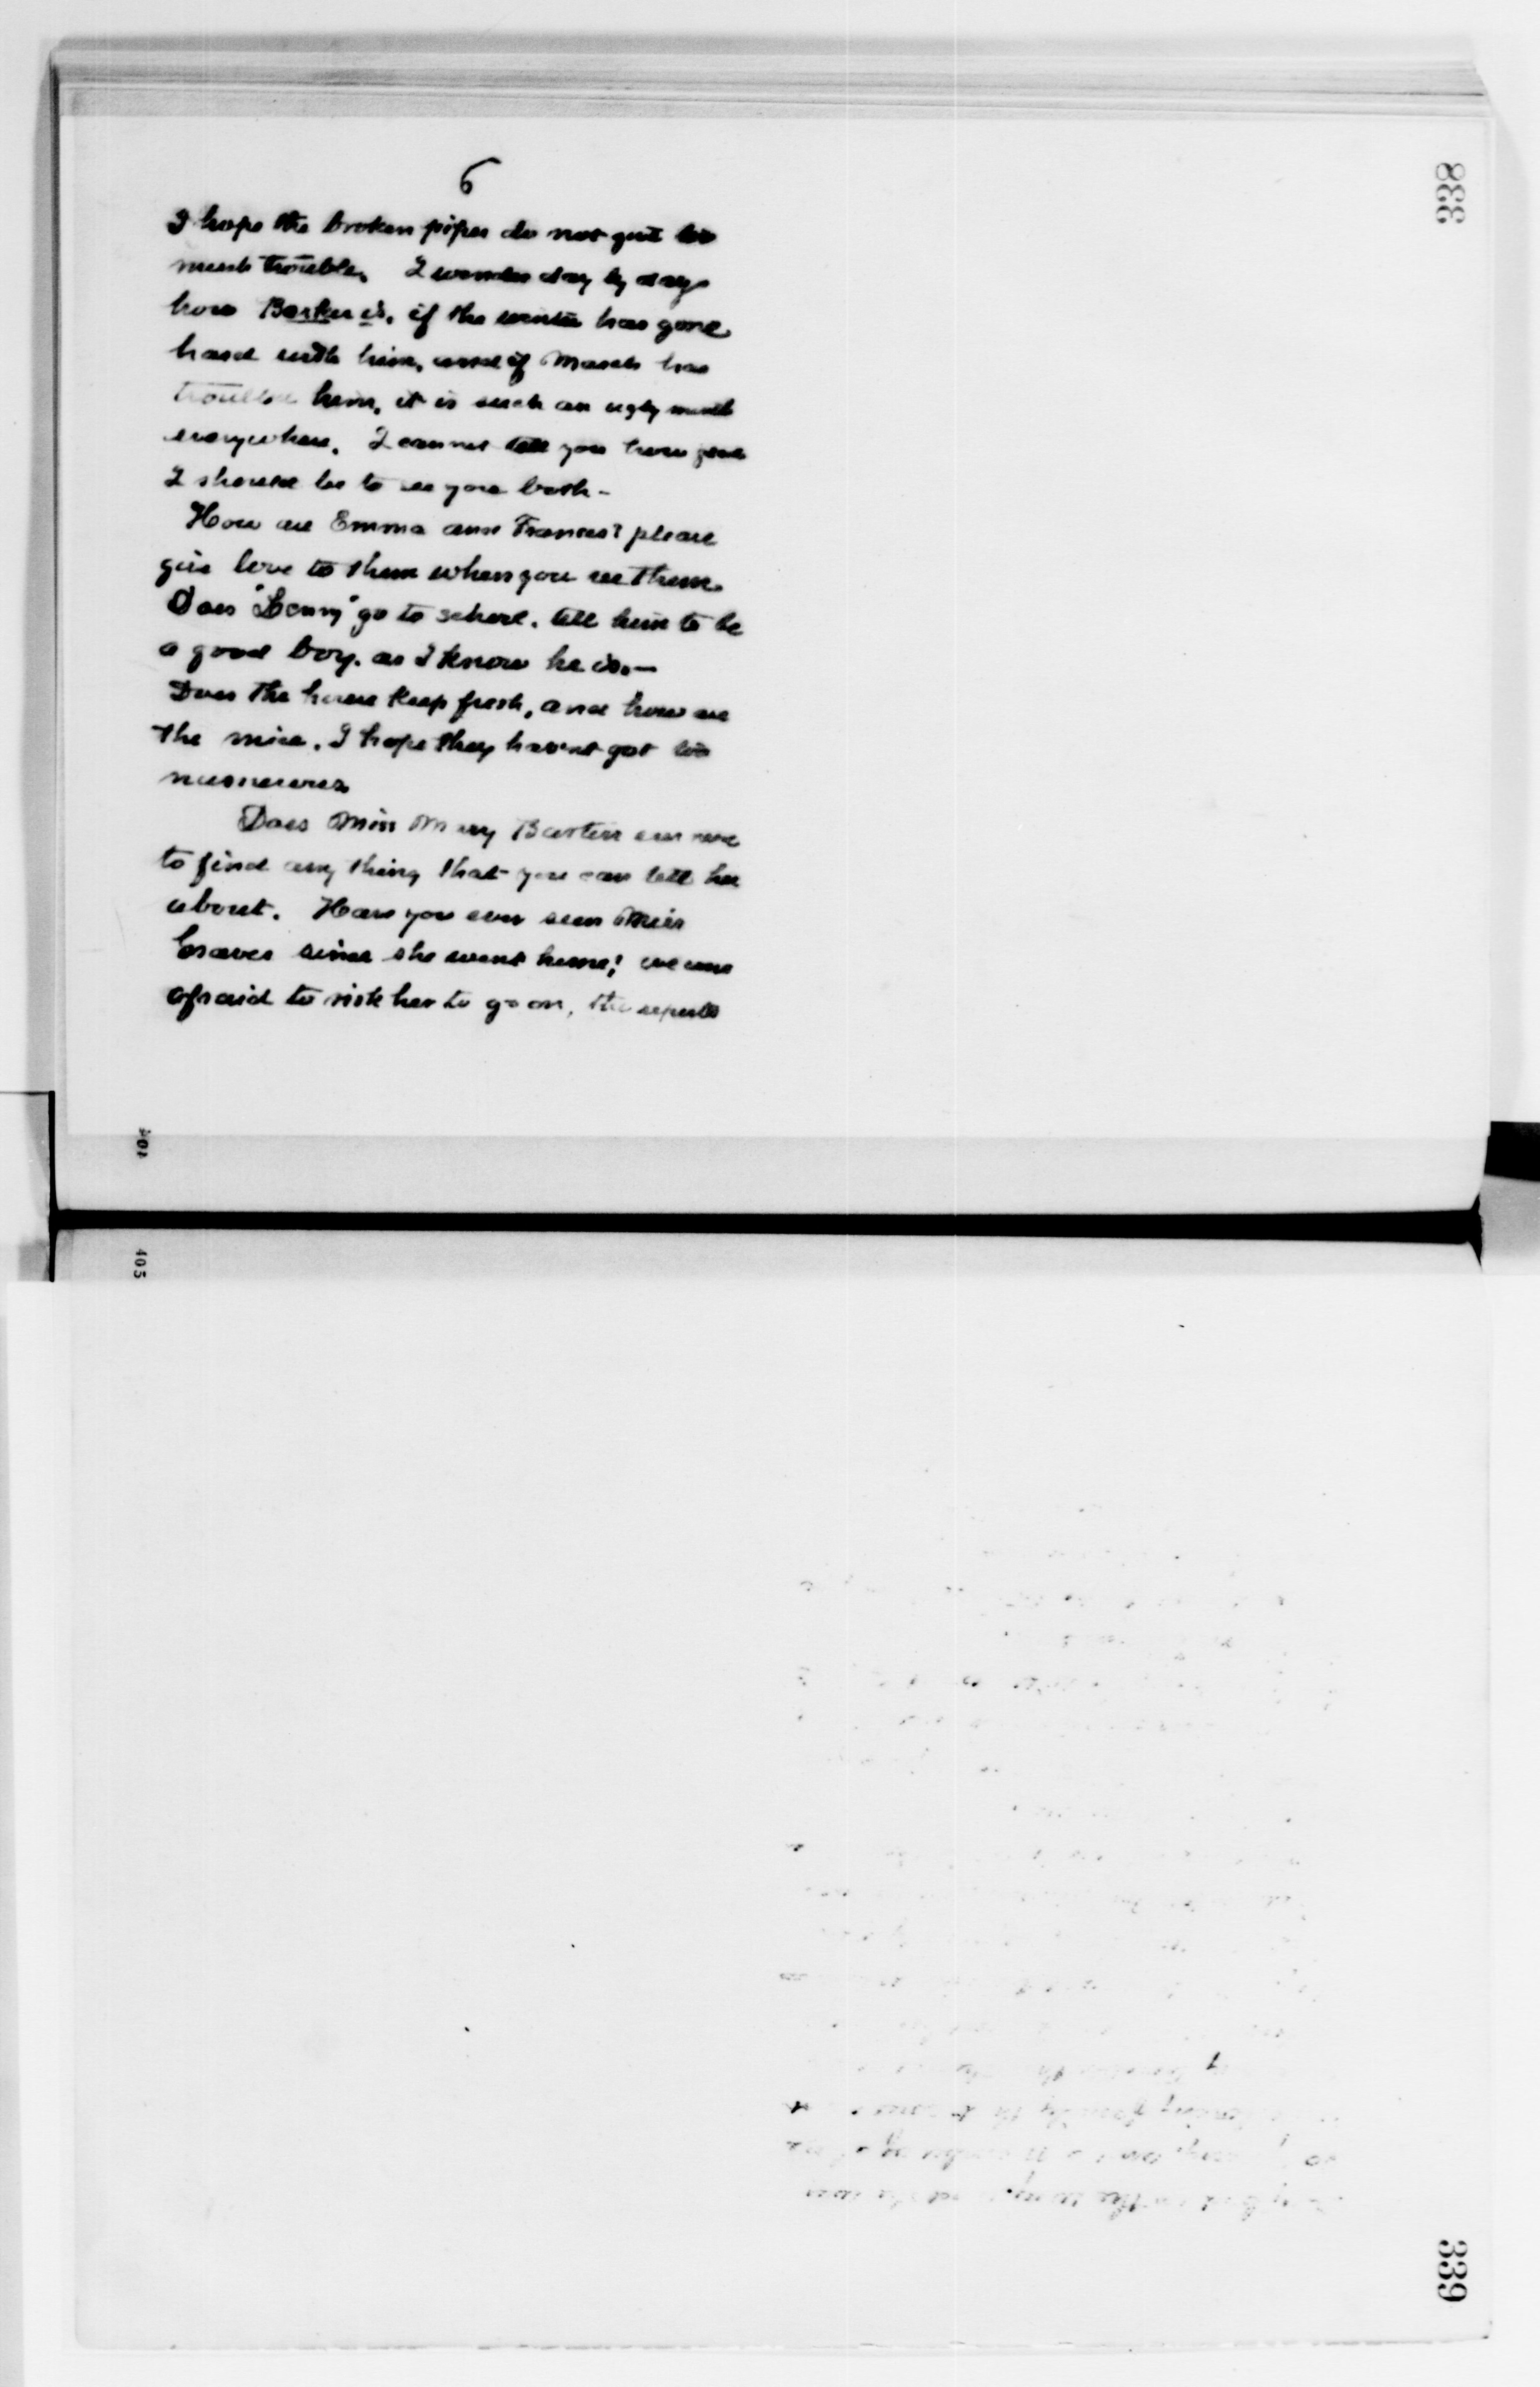 338
6
I hope the broken pipes do not give too
much trouble. I wonder day by day
how Barker is, if the winter has gone
hard with him, and if March has
troubled him, it is such an ugly month
everywhere. I cannot tell you how glad
I should be to see you both -
How are Emma and Frances? please
give love to them when you see them.
Does "Lenny" go to school. tell him to be
a good boy. as I know he is. —
Does the house keep fresh, and how are
the mice. I hope they havent got too
numerous.
Does Miss Mary Barton ever
to find any thing that you can tell her
about. Have you ever seen Miss
Graves since she went home! we were
afraid to risk her to go on, the
405
339